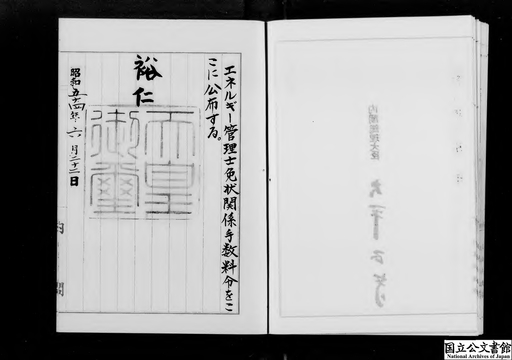 エネルギー管理士免状関係手数料令をこ
こに公布する。
裕仁
天皇
御璽
昭和五十四年六月二十二日
内閣
内閣総理大臣
大平正芳
国立公文書館
National Archives of Japan